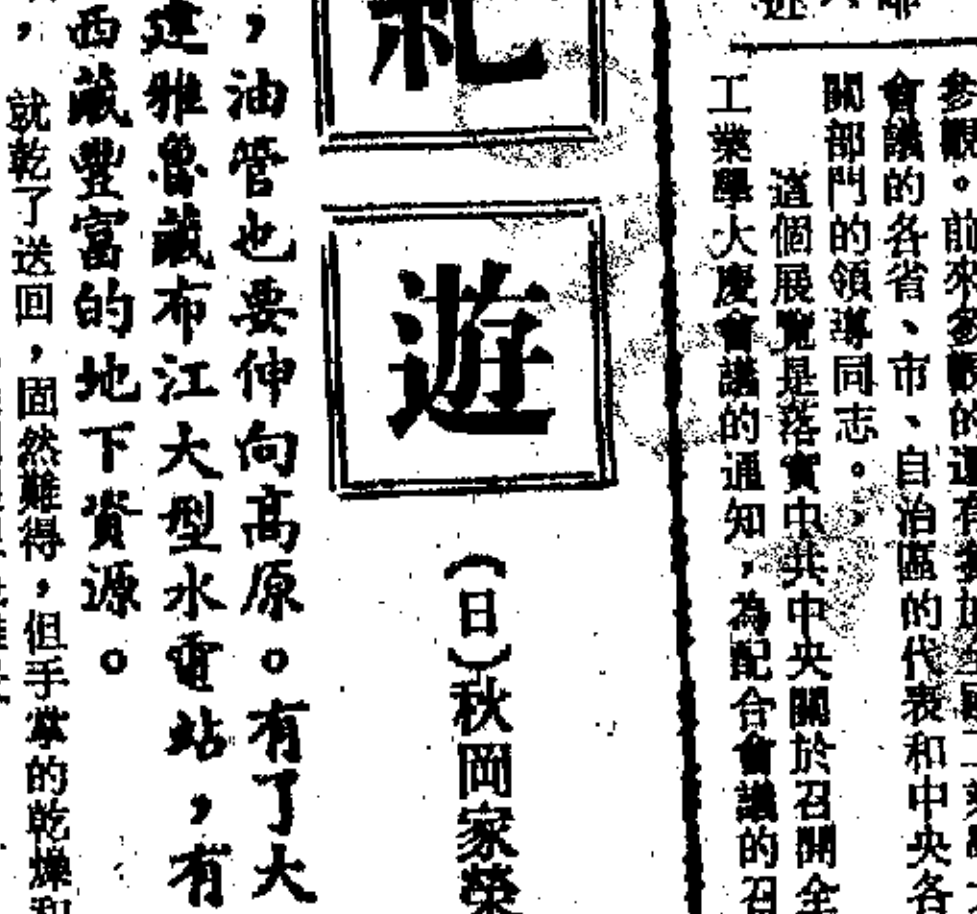 參觀。前來參觀的還有參加全國工業學大
會議的各省、市、自治區的代表和中央各
關部門的領導同志。
這個展覽是落實中共中央關於召開全
工業學大慶會議的通知,為配合會議的召
札
遊
(日)秋岡家榮
,油管也要伸向高原。有了大
建雅魯藏布江大型水電站,有
西藏豐富的地下資源。
就乾了送回,固然難得,但手掌的乾燥和